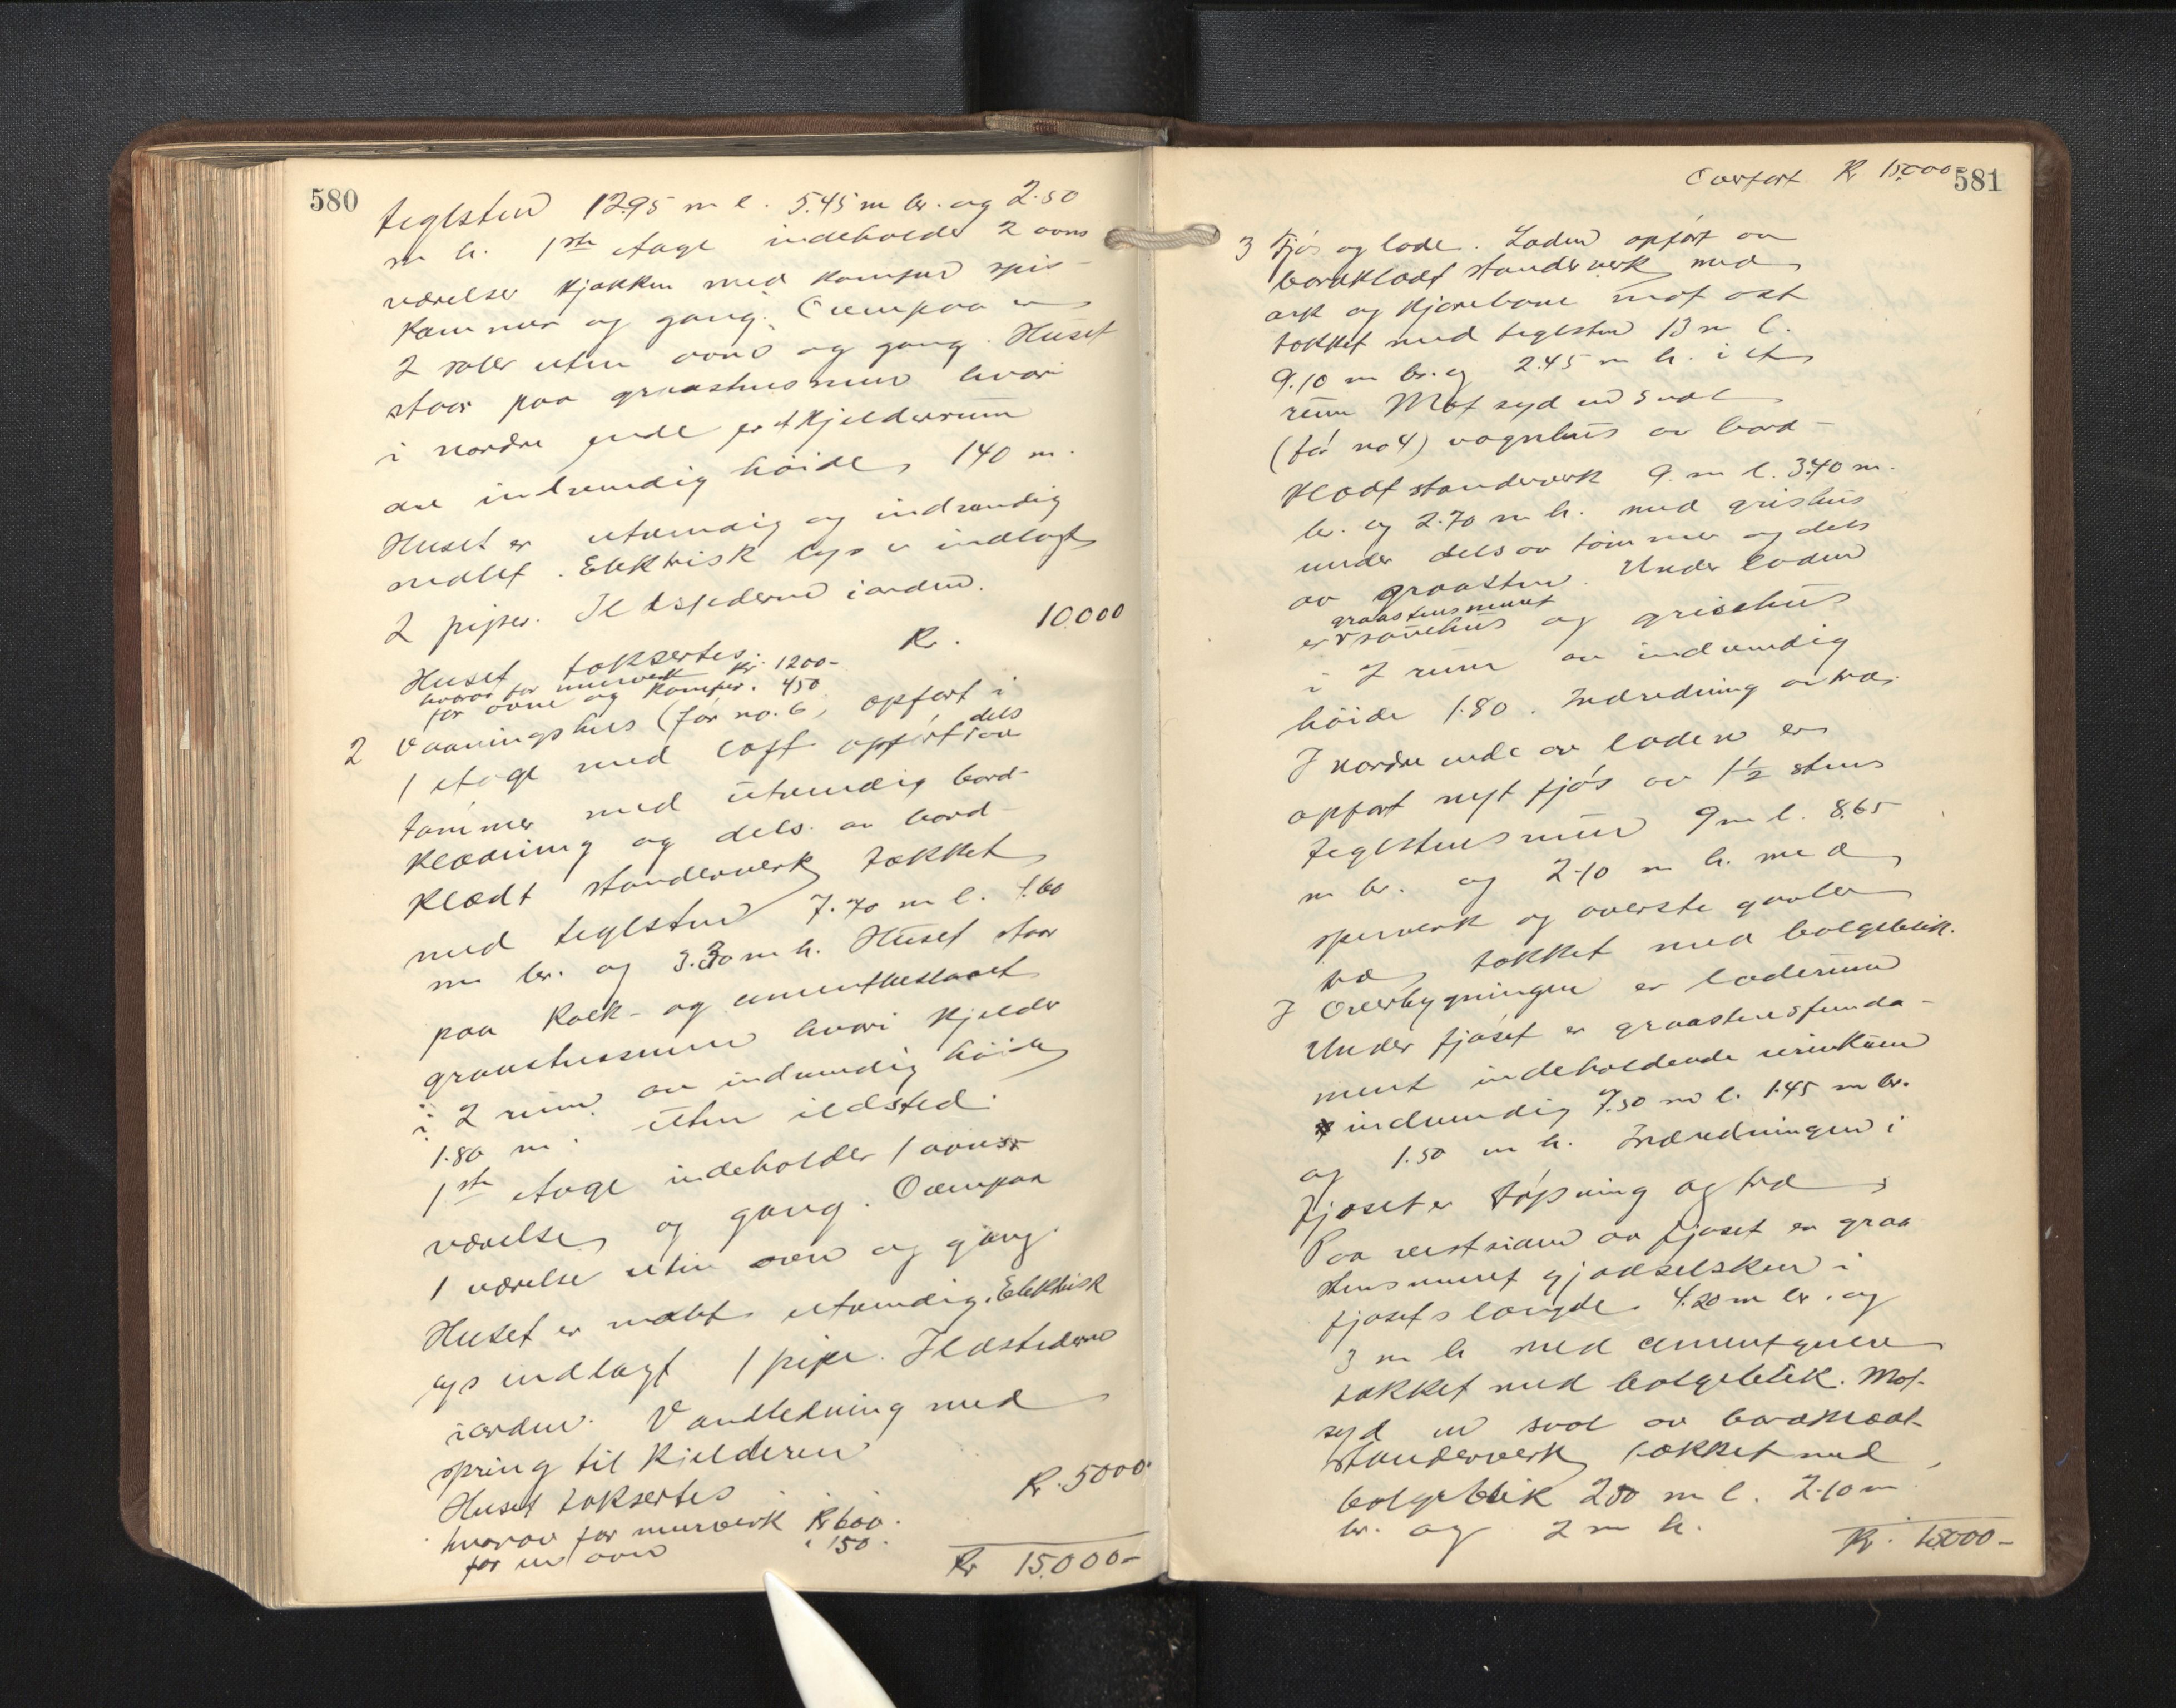 580
teglsten 12.95 m l. 5.45 m br. og 2.50
m h. 1ste etage indeholder 2 ovns
værelser kjøkken med komfur spis-
kammer og gang. Ovenpaa er
2 saler uten ovne og gang. Huset
staar paa graastensmur hvori
i nordre ende er et kjelderrum
av indvendig høide 140 m.
Huset er utvendig og indvendig
malet. Elektrisk lys er indlagt
2 piper. Ildstederne i orden.
Huset taksertes. Kr. 10.000
hvorav for murverk Kr. 1200-
for ovne og komfur. 450
2 Vaaningshus (før no. 6, opført i
1 etage med loft opført dels av
tømmer med utvendig bord-
klædning og dels av bord-
klædt standerverk tækket
med teglsten 7.70 m l. 4.60
m br. og 3.30 m h. Huset staar
paa kalk- og cementbeslaaet
graastensmur hvori kjelder
i 2 rum av indvendig høide
1.80 m. uten ildsted.
1ste etage indeholder 1 ovns-
værelse og gang. Ovenpaa
1 værelse uten ovn og gang.
Huset er malet utvendig. Elektrisk
lys indlagt 1 pipe. Ildstederne
i orden. Vandledning med
spring til kjelderen
Huset taksertes Kr. 5000.
hvorav for murverk Kr 600.
for en ovn " 150.
Kr 15.000-
Overført Kr 15.000-
581
3 Fjøs og lade. Laden opført av
bordklædt standerverk med
ark og kjørebane mot øst
tækket med teglsten 13 m l.
9.10 m br. og 2.45 m h. i et
rum Mot syd en sval
(før no 4) vognhus av bord-
klædt standerverk 9 m l. 3.40 m.
br. og 2.70 m h. med grishus
under dels av tømmer og dels
av graasten. Under laden
er graastensmuret sauehus og grisehus
i 2 rum av indvendig
høide 1.80. Indredning av træ.
I nordre ende av laden er
opført nyt fjøs av 1 1/2 stens
teglstensmur 9 m l. 8.65
m br. og 2.10 m h. med
sperverk og øverste gavler
træ, tækket med bølgeblik.
I Overbygningen er laderum
Under fjøset er graastensfunda-
ment indeholdende urinkum
indvendig 7.50 m l. 1.45 m br.
og 1.50 m h. Indredningen i
fjøset er støpning og træ
Paa vestsiden av fjøset er graa
stensmuret gjødselskur i
fjøsets længde 4.20 m br. og
3 m h med cementgulv
tækket med bølgeblik. Mot
syd en sval av bordklædt
standerverk tækket med
bølgeblik 2.80 m l. 2.10 m
br. og 2 m h.
Kr. 15.000-